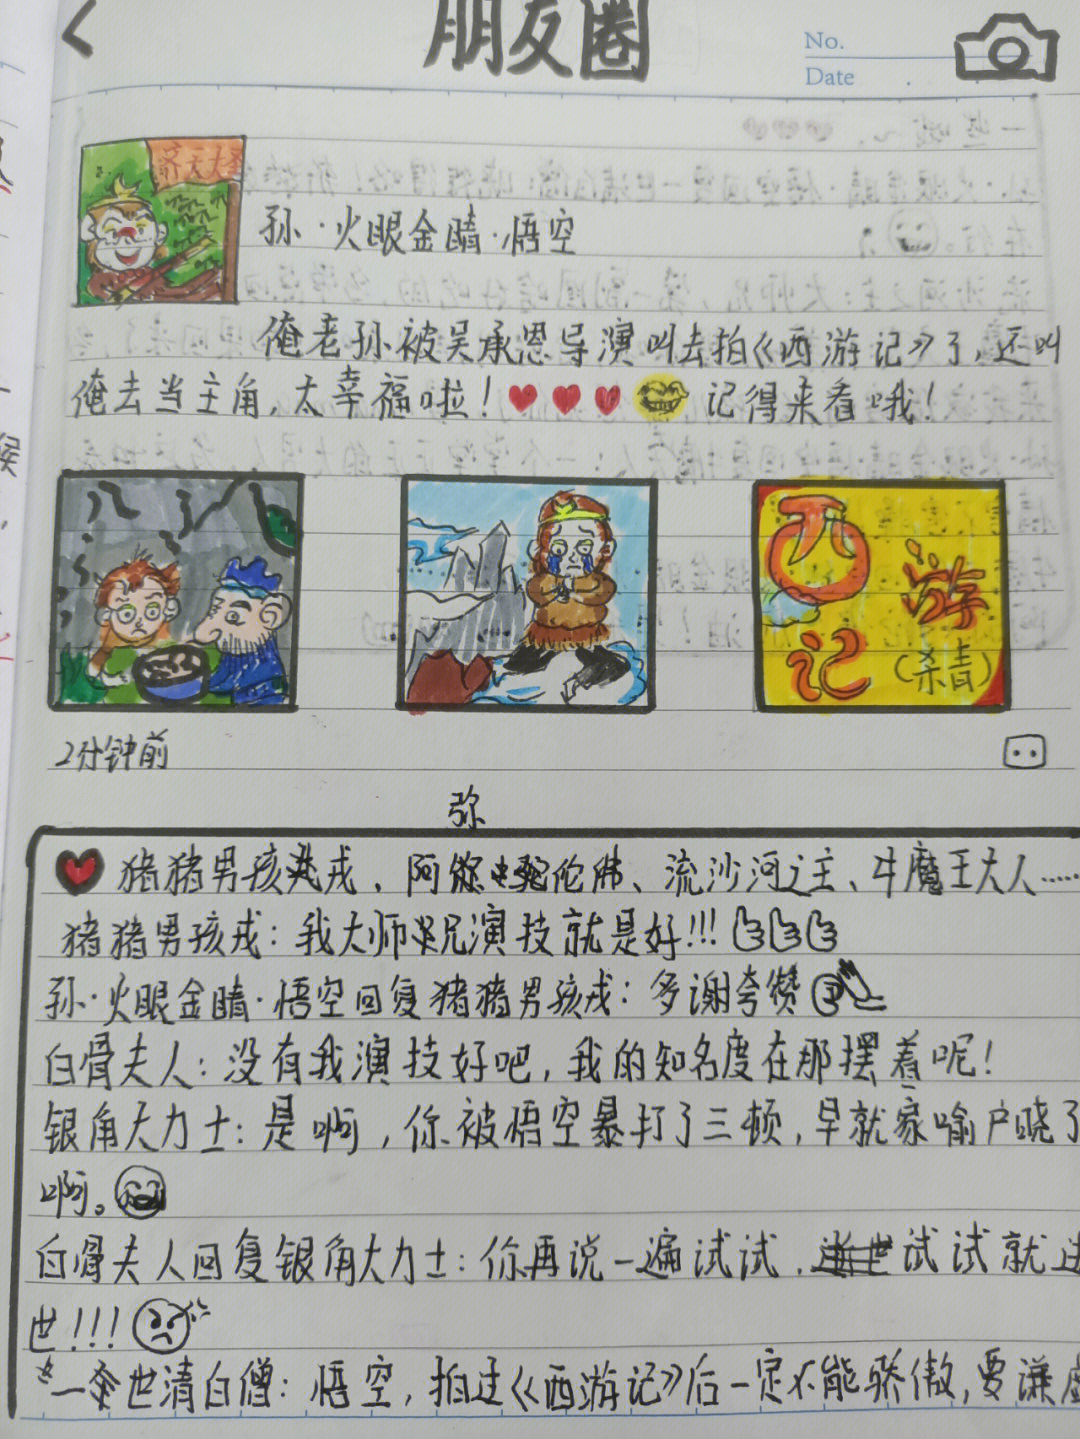 朋友圈
No.
Date
齐天大圣
孙·火眼金睛·悟空
俺老孙被吴承恩导演叫去拍《西游记》了,还叫
俺去当主角,太幸福啦!记得来看哦!
西游记
(杀青)
2分钟前
弥
猪猪男孩戒、阿陀佛、流沙河之主、牛魔王大人……
猪猪男孩戎:我大师兄演技就是好!!!
孙·火眼金睛·悟空回复猪猪男孩戎:多谢夸赞
白骨夫人:没有我演技好吧,我的知名度在那摆着呢!
银角大力士:是啊,你被悟空暴打了三顿,早就家喻户晓了
啊。
白骨夫人回复银角大力士:你再说一遍试试.试试就逝
世!!!
一世清白僧:悟空,拍过《西游记》后一定不能骄傲,要谦虚